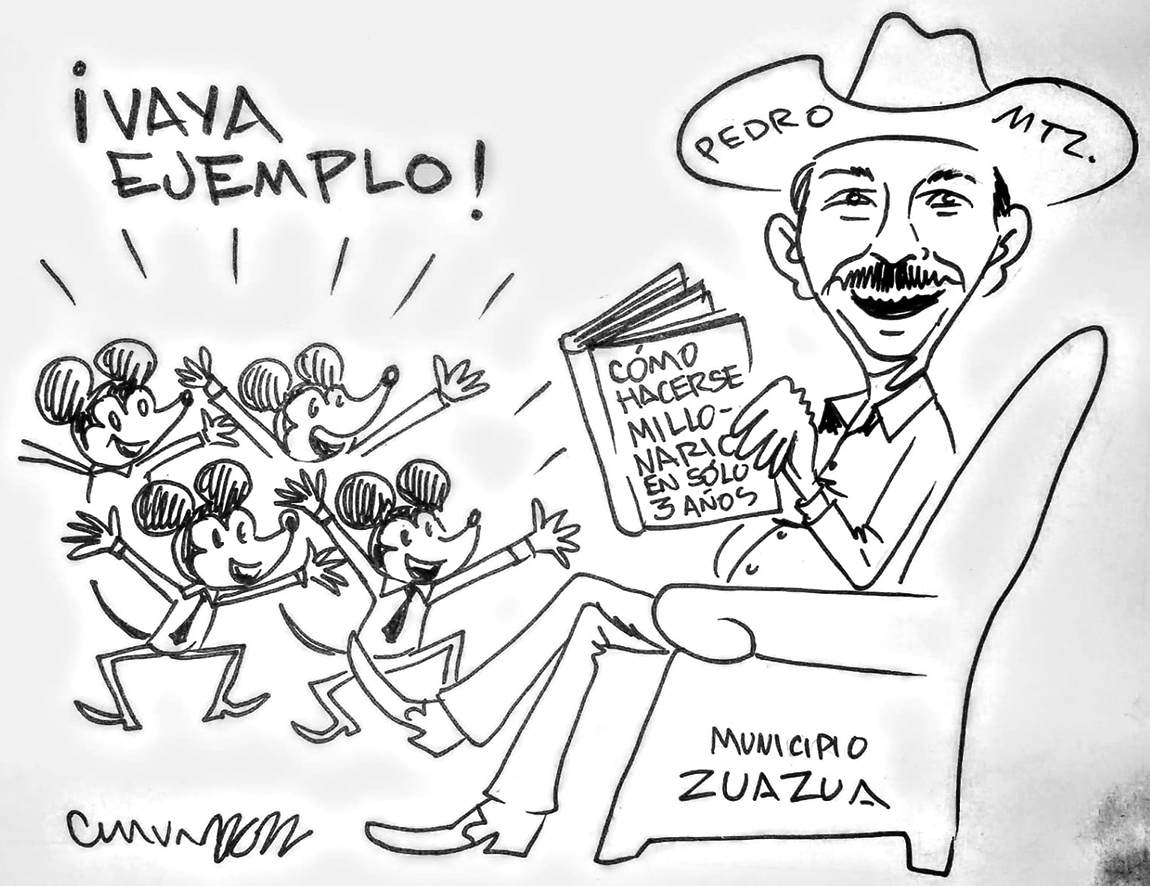 ¡VAYA
EJEMPLO!
PEDRO MTZ.
CÓMO
HACERSE
MILLO-
NARIO
EN SÓLO
3 AÑOS
MUNICIPIO
ZUAZUA